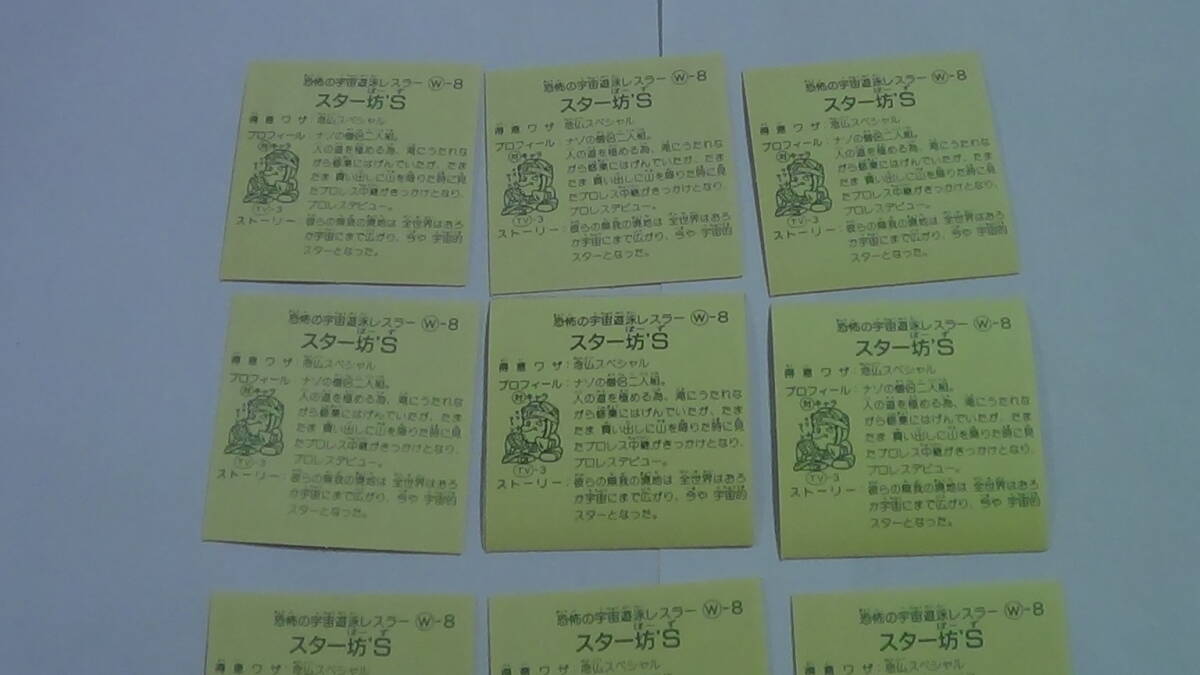 恐怖の宇宙遊泳レスラー Ⓦ-8
スター坊'S
得意ワザ:念仏スペシャル
プロフィール:ナゾの僧侶二人組。
人の道を極める為、滝にうたれな
がら修業にはげんでいたが、たま
たま 買い出しに山を降りた時に見
たプロレス中継がきっかけとなり、
プロレスデビュー。
対キャラ
TV-3
ストーリー:彼らの無我の境地は 全世界はおろ
か宇宙にまで広がり、今や 宇宙的
スターとなった。
恐怖の宇宙遊泳レスラー Ⓦ-8
スター坊'S
得意ワザ:念仏スペシャル
プロフィール:ナゾの僧侶二人組。
人の道を極める為、滝にうたれな
がら修業にはげんでいたが、たま
たま 買い出しに山を降りた時に見
たプロレス中継がきっかけとなり、
プロレスデビュー。
対キャラ
TV-3
ストーリー:彼らの無我の境地は 全世界はおろ
か宇宙にまで広がり、今や 宇宙的
スターとなった。
恐怖の宇宙遊泳レスラー Ⓦ-8
スター坊'S
得意ワザ:念仏スペシャル
プロフィール:ナゾの僧侶二人組。
人の道を極める為、滝にうたれな
がら修業にはげんでいたが、たま
たま 買い出しに山を降りた時に見
たプロレス中継がきっかけとなり、
プロレスデビュー。
対キャラ
TV-3
ストーリー:彼らの無我の境地は 全世界はおろ
か宇宙にまで広がり、今や 宇宙的
スターとなった。
恐怖の宇宙遊泳レスラー Ⓦ-8
スター坊'S
得意ワザ:念仏スペシャル
プロフィール:ナゾの僧侶二人組。
人の道を極める為、滝にうたれな
がら修業にはげんでいたが、たま
たま 買い出しに山を降りた時に見
たプロレス中継がきっかけとなり、
プロレスデビュー。
対キャラ
TV-3
ストーリー:彼らの無我の境地は 全世界はおろ
か宇宙にまで広がり、今や 宇宙的
スターとなった。
恐怖の宇宙遊泳レスラー Ⓦ-8
スター坊'S
得意ワザ:念仏スペシャル
プロフィール:ナゾの僧侶二人組。
人の道を極める為、滝にうたれな
がら修業にはげんでいたが、たま
たま 買い出しに山を降りた時に見
たプロレス中継がきっかけとなり、
プロレスデビュー。
対キャラ
TV-3
ストーリー:彼らの無我の境地は 全世界はおろ
か宇宙にまで広がり、今や 宇宙的
スターとなった。
恐怖の宇宙遊泳レスラー Ⓦ-8
スター坊'S
得意ワザ:念仏スペシャル
プロフィール:ナゾの僧侶二人組。
人の道を極める為、滝にうたれな
がら修業にはげんでいたが、たま
たま 買い出しに山を降りた時に見
たプロレス中継がきっかけとなり、
プロレスデビュー。
対キャラ
TV-3
ストーリー:彼らの無我の境地は 全世界はおろ
か宇宙にまで広がり、今や 宇宙的
スターとなった。
恐怖の宇宙遊泳レスラー Ⓦ-8
スター坊'S
得意ワザ:念仏スペシャル
恐怖の宇宙遊泳レスラー Ⓦ-8
スター坊'S
得意ワザ:念仏スペシャル
恐怖の宇宙遊泳レスラー Ⓦ-8
スター坊'S
得意ワザ:念仏スペシャル